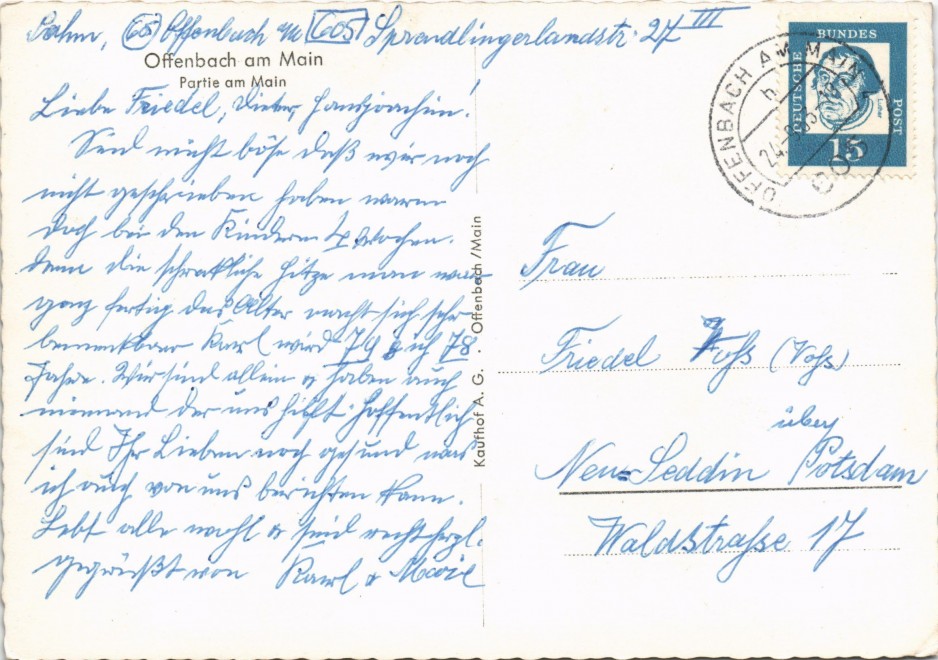 Offenbach a/M 605 Sprendlingerlandstr. 27 III
Offenbach am Main
Partie am Main
Liebe Friedel, Dieter, Hansjoachim!
Seid nicht böse daß wir noch
nicht geschrieben haben waren
doch bei den Kindern 4 Wochen.
denn die schreckliche Hitze man war
ganz fertig das Alter macht sich sehr
bemerkbar Karl wird 79 & ich 78
Jahre. Wir sind allein & haben auch
niemand der uns hilft. Hoffentlich
seid Ihr Lieben noch gesund was
ich auch von uns berichten kann.
Lebt alle wohl & seid recht herzl.
gegrüßt von Karl &
Kaufhof A. G. . Offenbach/Main
BUNDES
DEUTSCHE
POST
Luther
15
OFFENBACH AM MAIN
Frau
Friedel Voß (Vohs)
über
Neu-Seddin Potsdam
Waldstraße 17